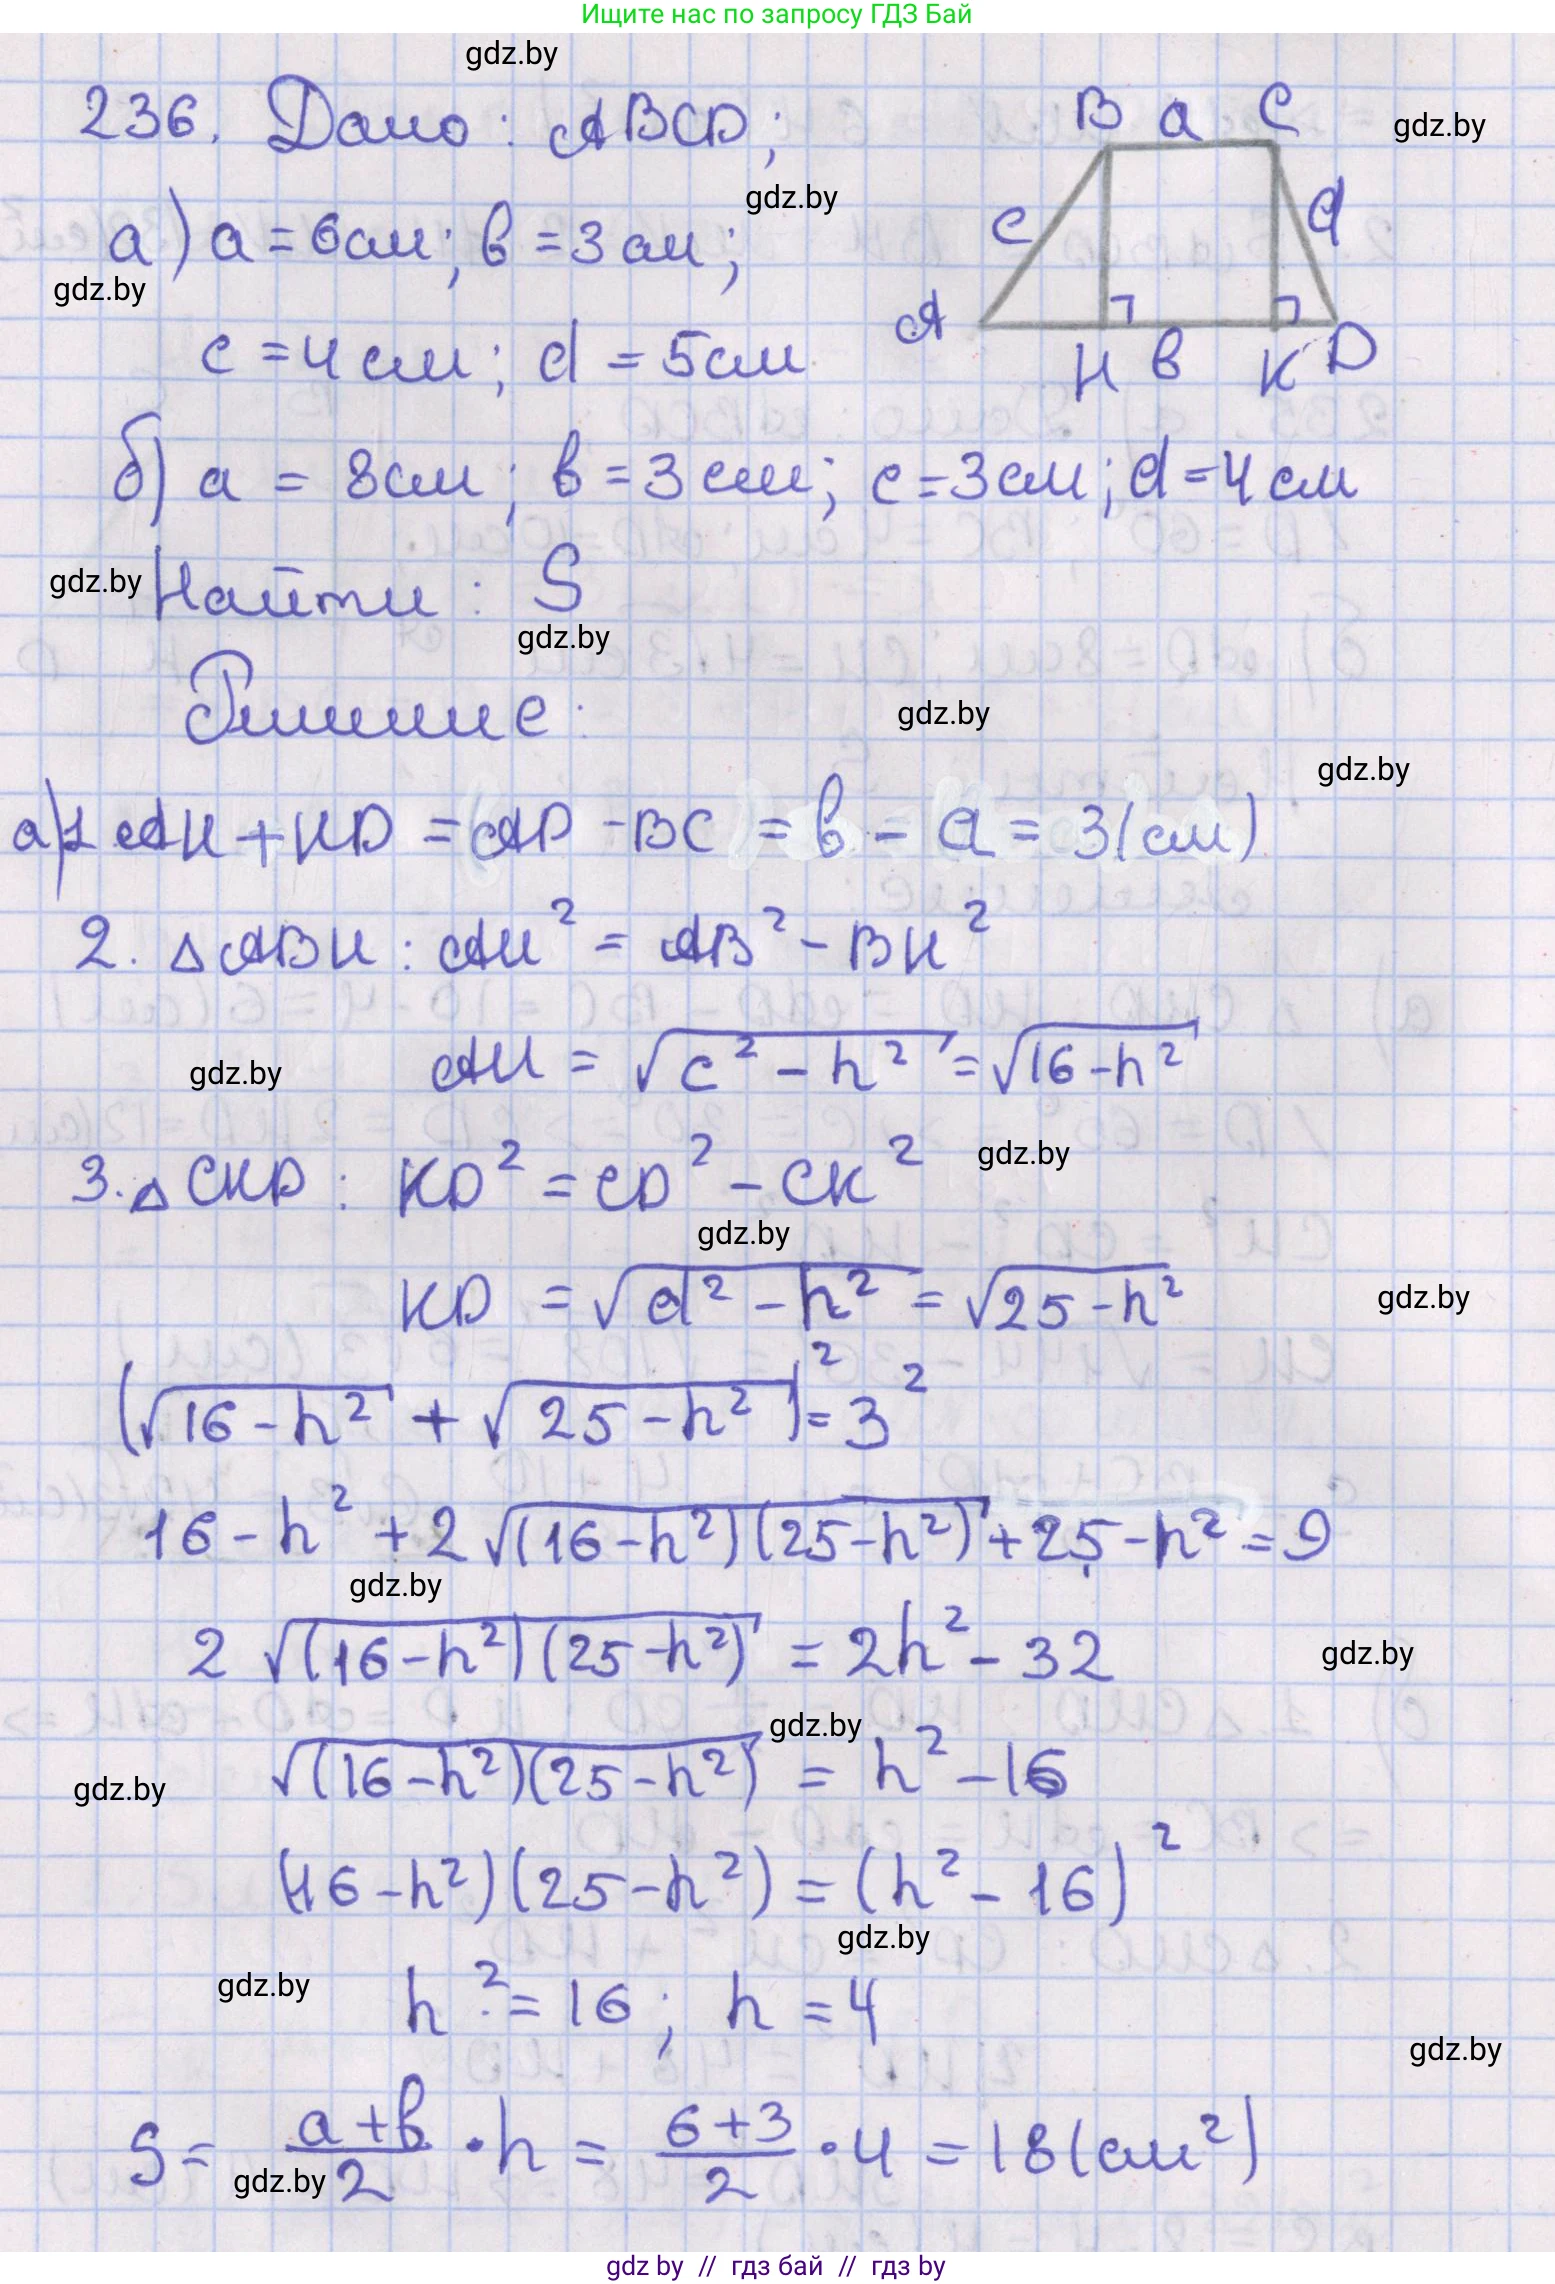 Ищите нас по запросу ГДЗ Бай
gdz.by
236. Дано: ABCD;
B a C
gdz.by
gdz.by
а) a = 6 см; b = 3 см;
c
d
gdz.by
A
H b K D
c = 4 см; d = 5 см
б) a = 8 см; b = 3 см; c = 3 см; d = 4 см
gdz.by
Найти: S
gdz.by
Решение:
gdz.by
gdz.by
а) 1. AH + KD = AD - BC = b - a = 3 (см)
2. △ABH: AH² = AB² - BH²
AH = √(c² - h²) = √(16 - h²)
gdz.by
3. △CKD: KD² = CD² - CK²
gdz.by
gdz.by
KD = √(d² - h²) = √(25 - h²)
gdz.by
(√(16 - h²) + √(25 - h²))² = 3²
16 - h² + 2√((16 - h²)(25 - h²)) + 25 - h² = 9
gdz.by
2√((16 - h²)(25 - h²)) = 2h² - 32
gdz.by
gdz.by
√((16 - h²)(25 - h²)) = h² - 16
gdz.by
(16 - h²)(25 - h²) = (h² - 16)²
gdz.by
gdz.by
h² = 16; h = 4
gdz.by
S = (a + b)/2 · h = (6 + 3)/2 · 4 = 18 (см²)
gdz.by
gdz by // гдз бай // гдз by